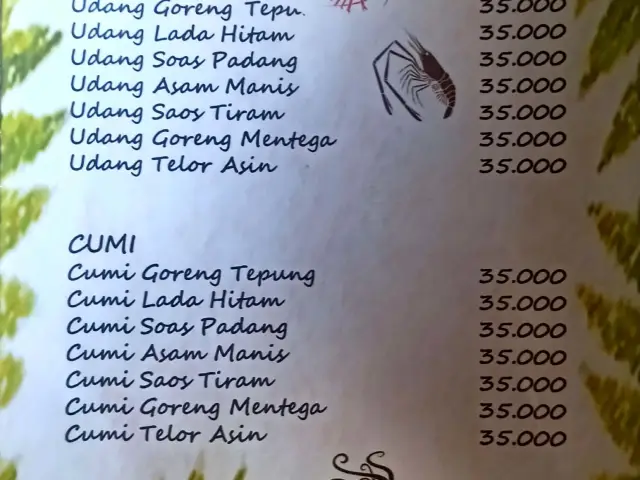 Udang Goreng Tepu. 35.000
Udang Lada Hitam 35.000
Udang Soas Padang 35.000
Udang Asam Manis 35.000
Udang Saos Tiram 35.000
Udang Goreng Mentega 35.000
Udang Telor Asin 35.000
CUMI
Cumi Goreng Tepung 35.000
Cumi Lada Hitam 35.000
Cumi Soas Padang 35.000
Cumi Asam Manis 35.000
Cumi Saos Tiram 35.000
Cumi Goreng Mentega 35.000
Cumi Telor Asin 35.000